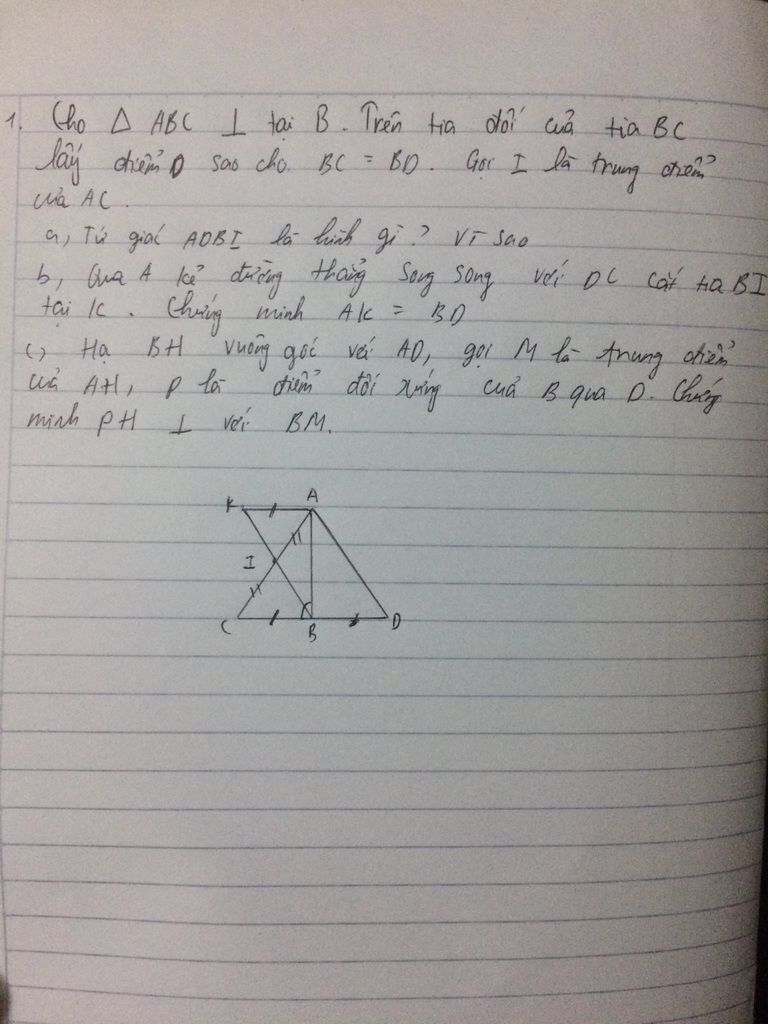 1. Cho Δ ABC ⊥ tại B. Trên tia đối của tia BC
lấy điểm D sao cho BC = BD. Gọi I là trung điểm
của AC.
a, Tứ giác ADBI là hình gì? Vì sao
b, Qua A kẻ đường thẳng song song với DC cắt tia BI
tại K. Chứng minh AK = BD
c, Hạ BH vuông góc với AD, gọi M là trung điểm
của AH, P là điểm đối xứng của B qua D. Chứng
minh PH ⊥ với BM.
K A
I
C B D